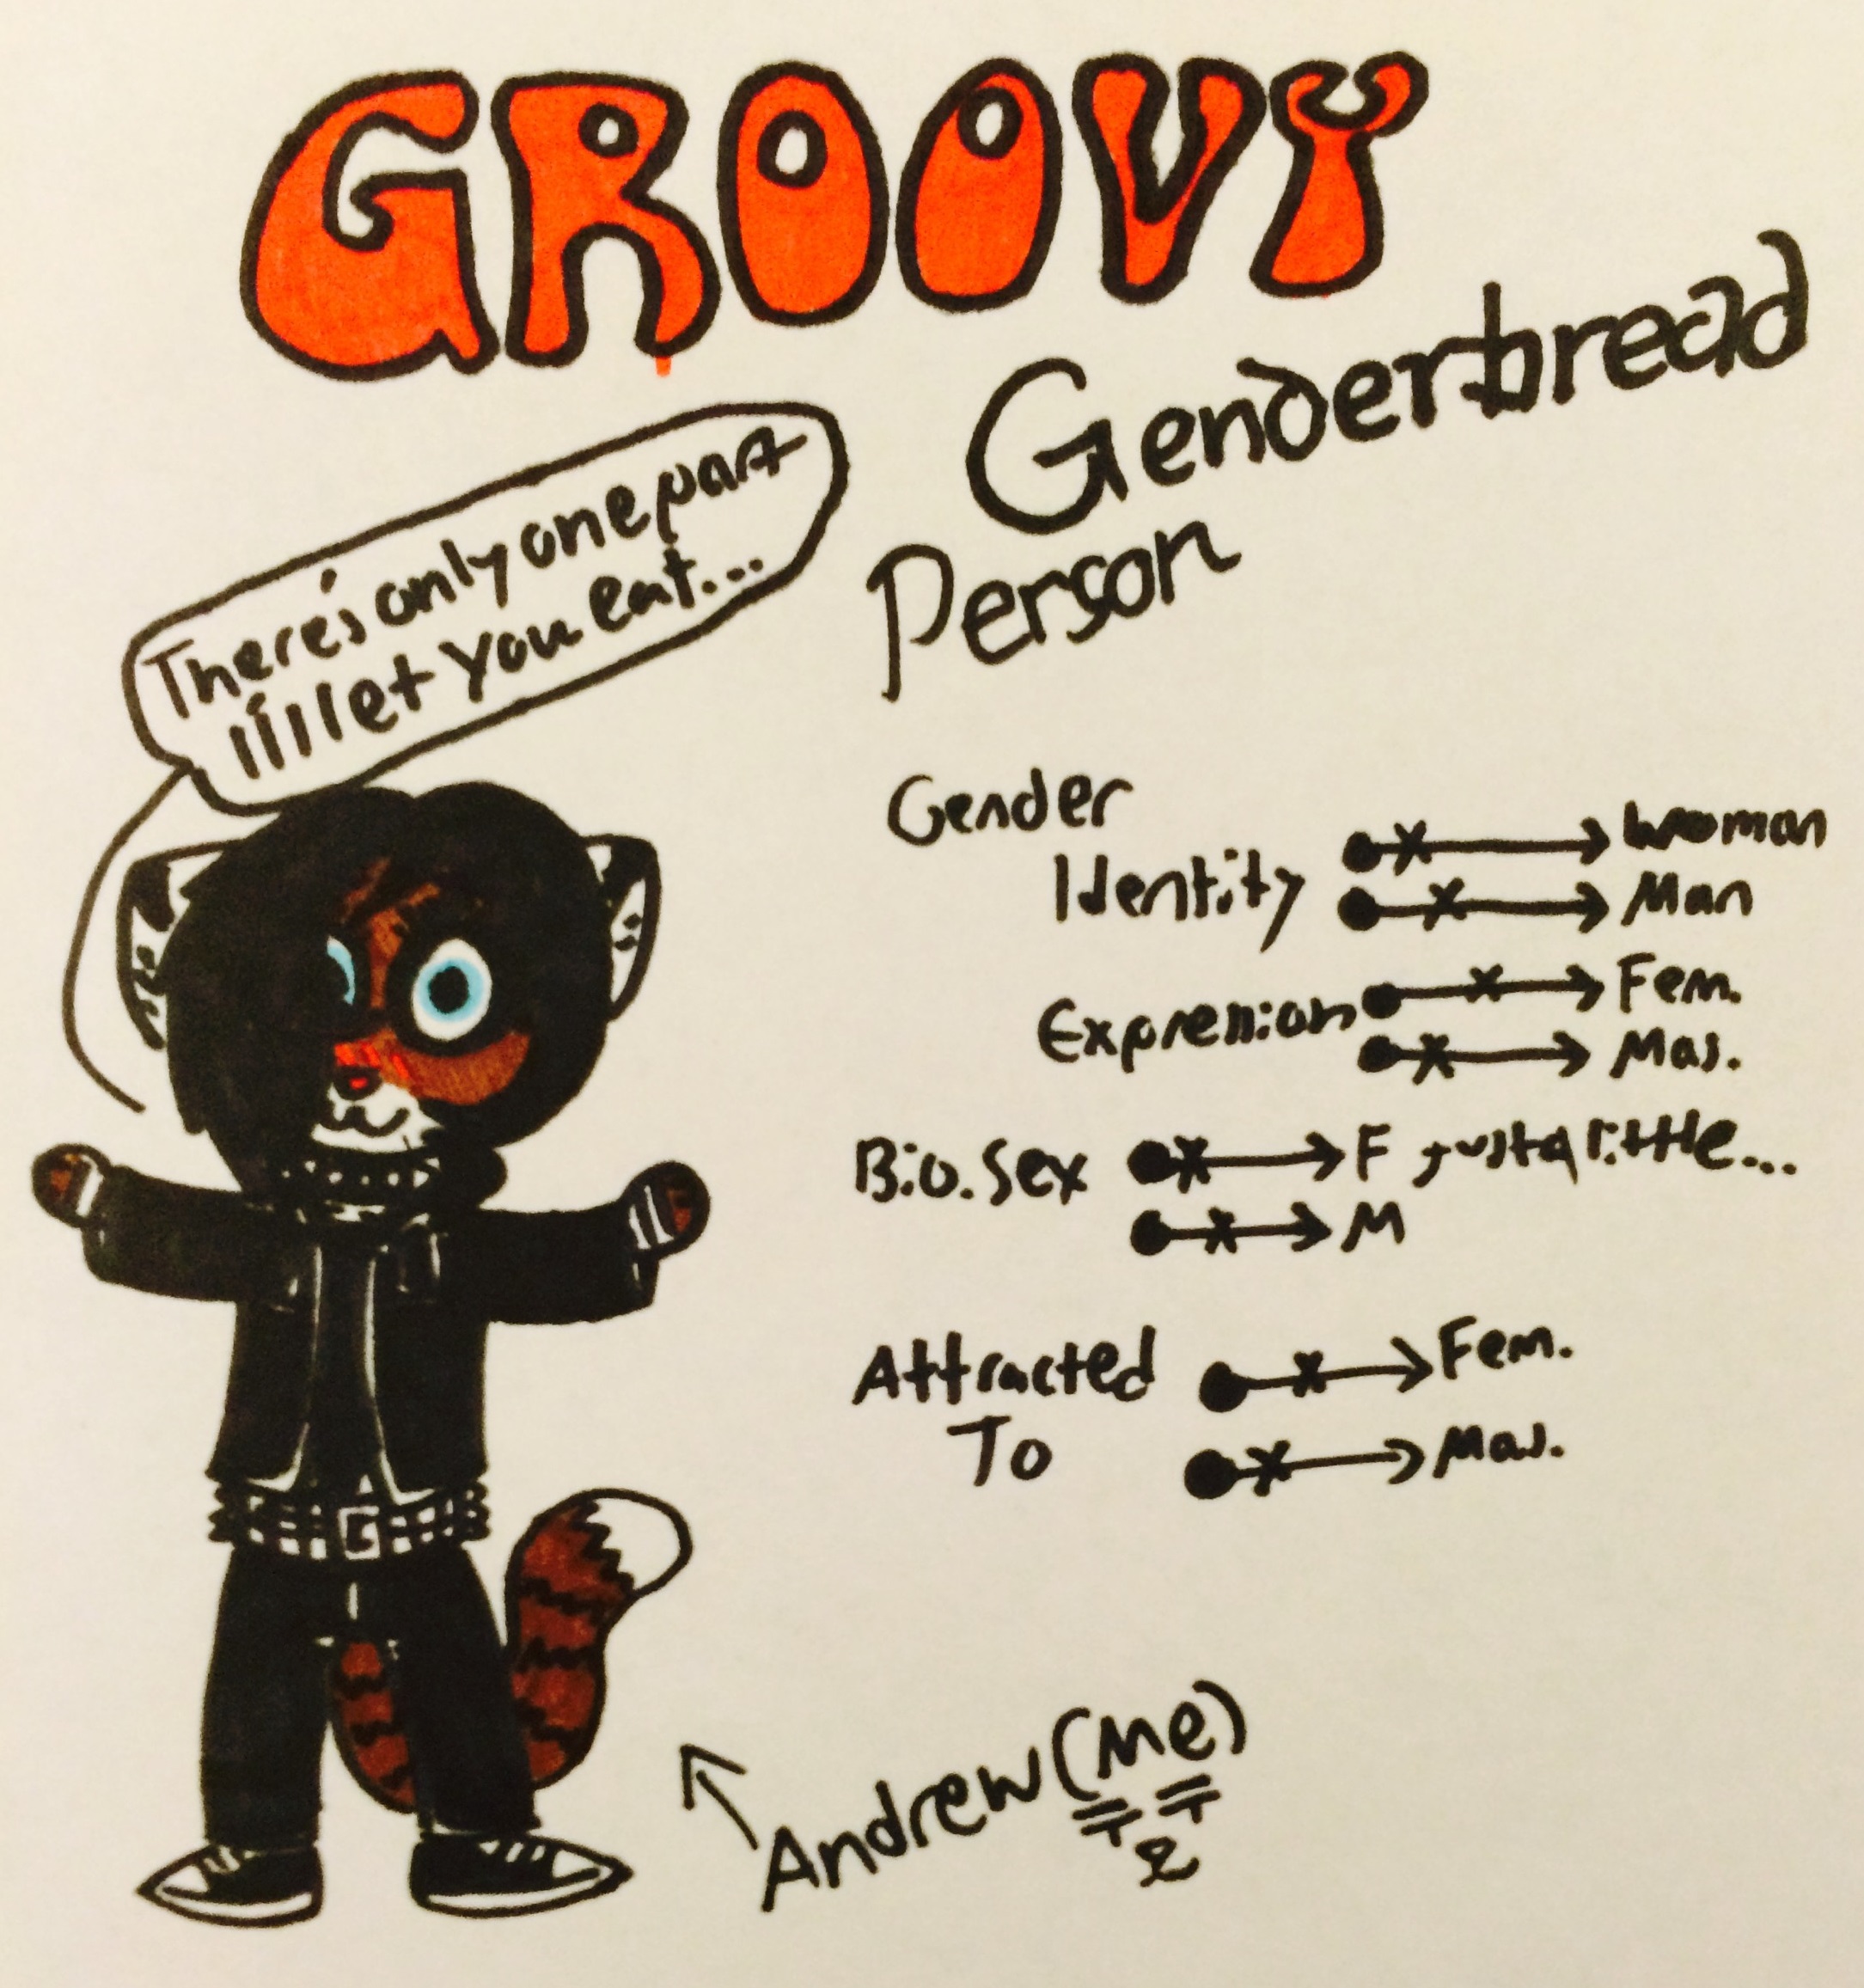 GROOVY
Genderbread
Person
There's only one part
I'll let you eat...
Gender
Identity
Woman
Man
Expression
Fem.
Mas.
Bio. Sex
F just a little...
M
Attracted
To
Fem.
Mas.
Andrew (Me)
G